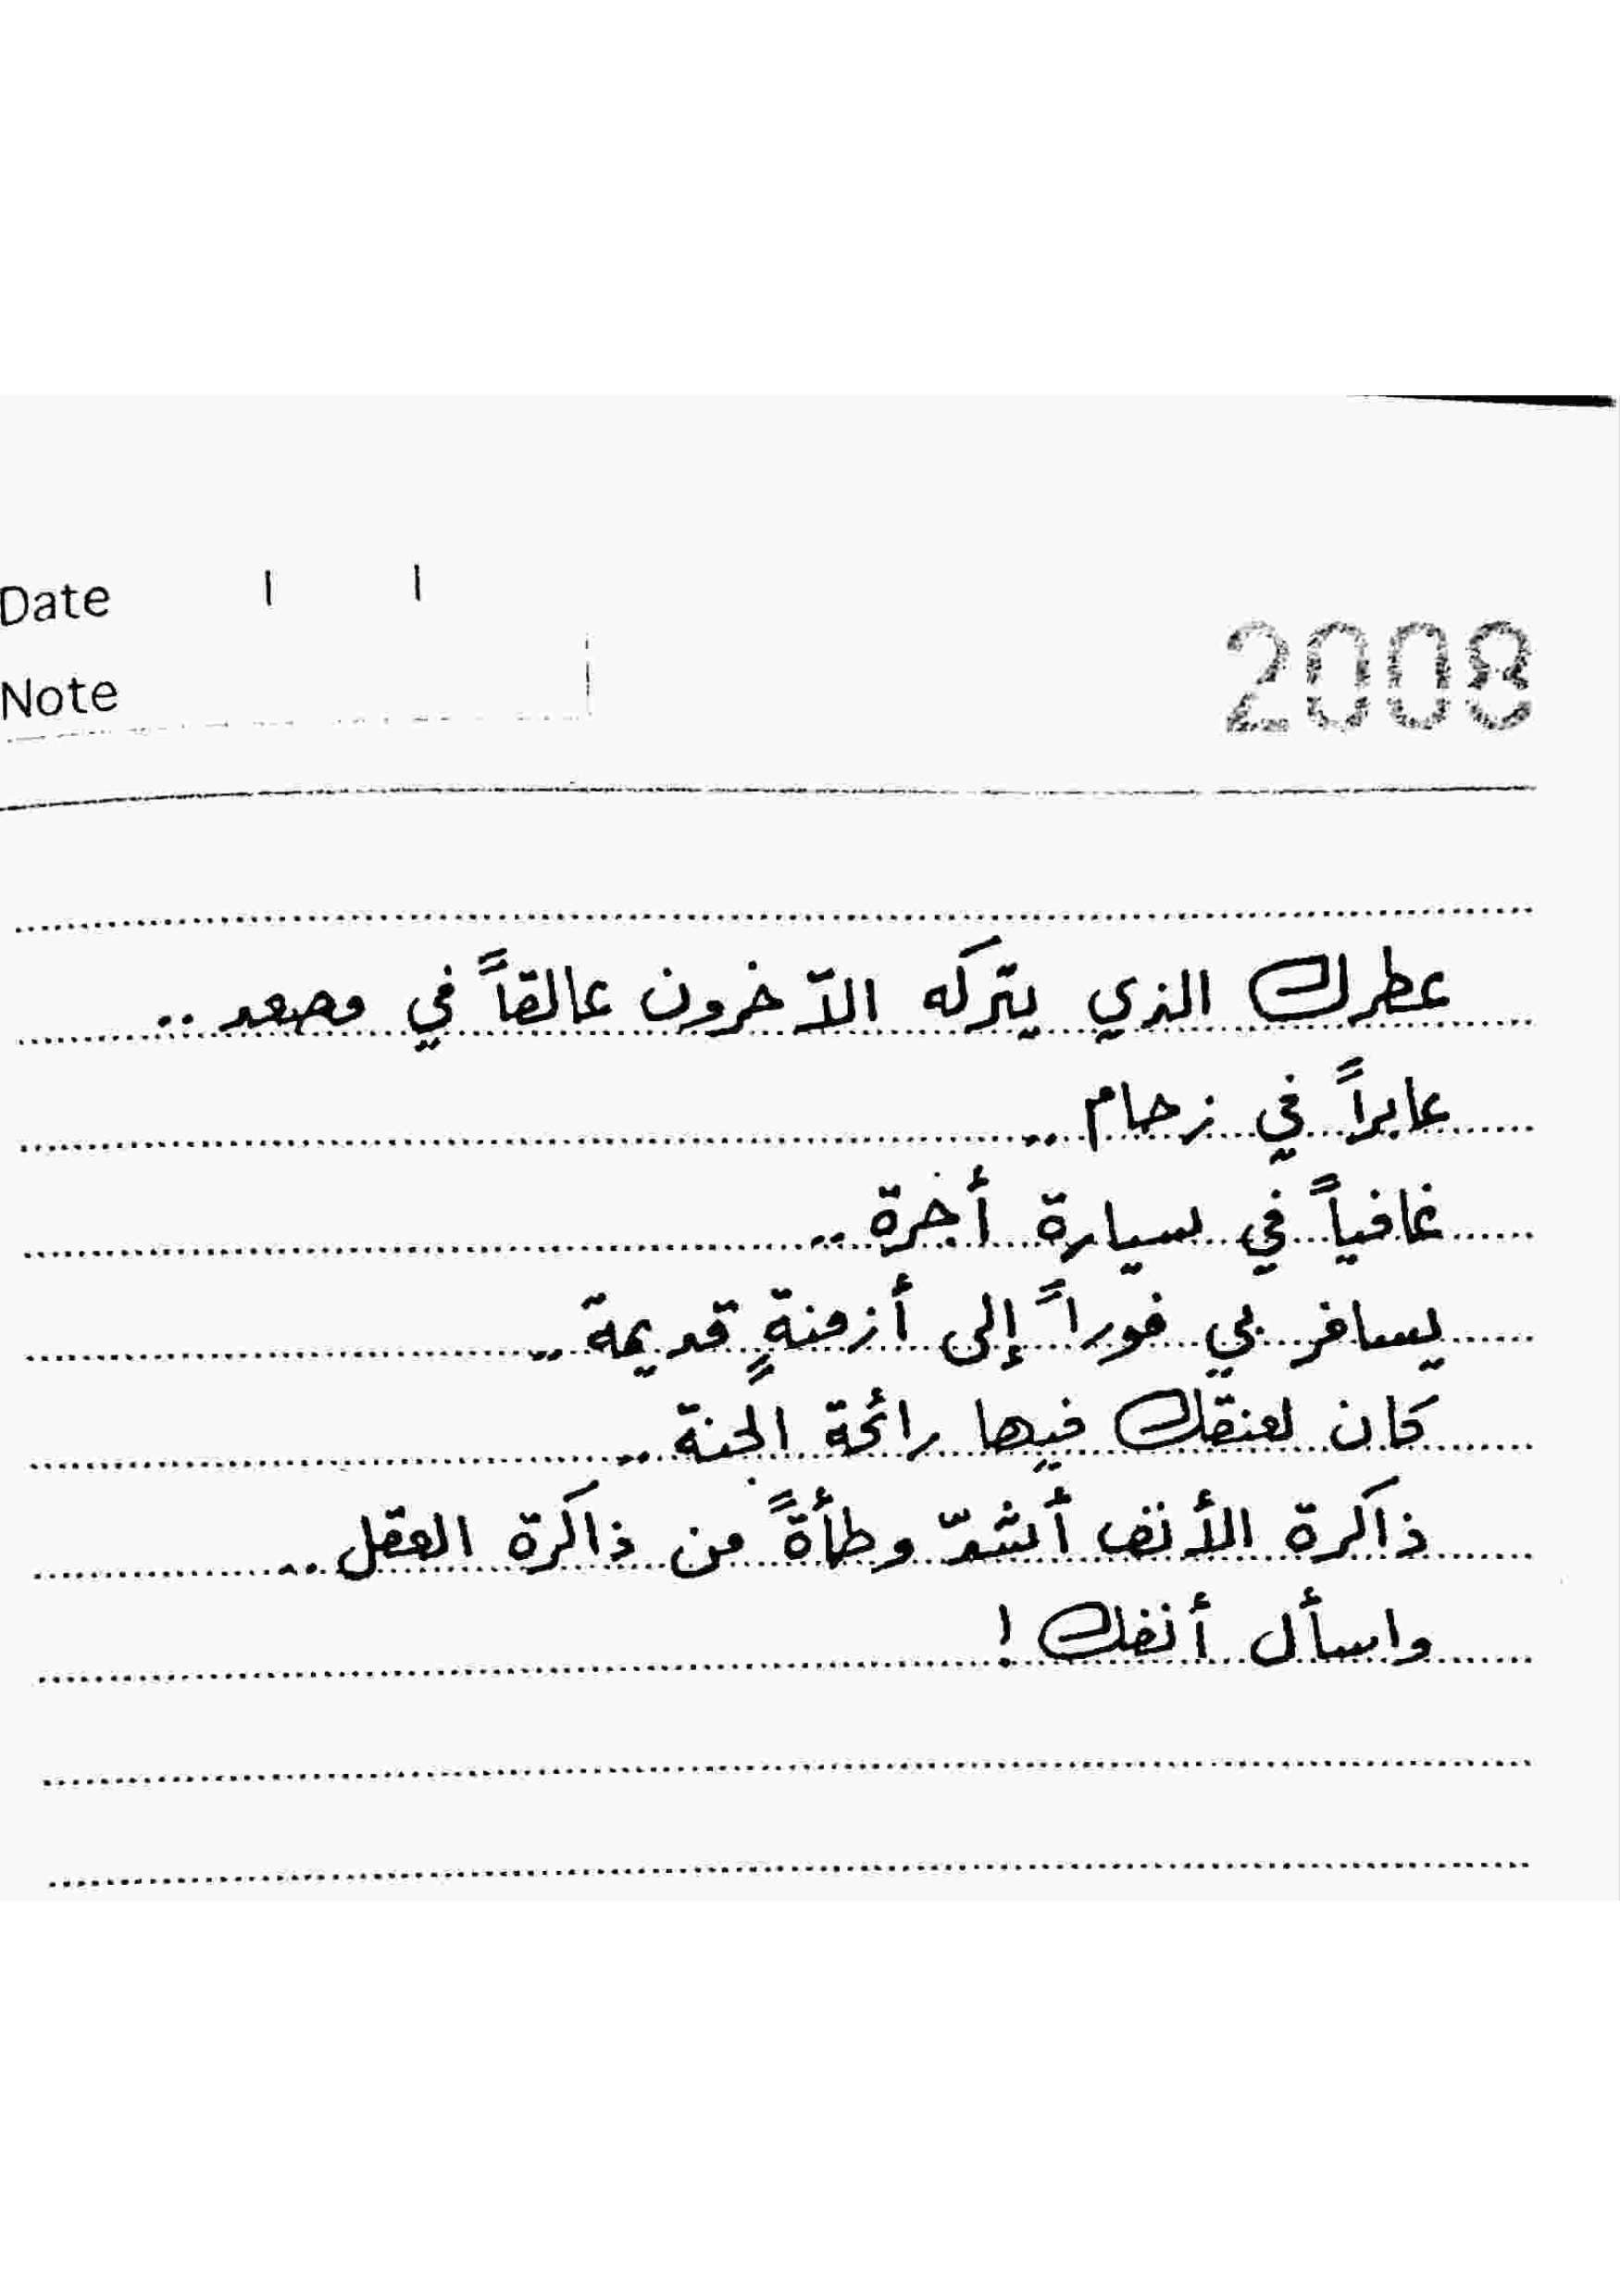 Date / /
2008
Note
عطرك الذي يتركه الآخرون عالقاً في مصعد ..
عابراً في زحام ..
غافياً في سيارة أجرة ..
يسافر بي فوراً إلى أزمنةٍ قديمة ..
كان لعنقك فيها رائحة الجنة ..
ذاكرة الأنف أشدّ وطأةً من ذاكرة العقل ..
واسأل أنفك !